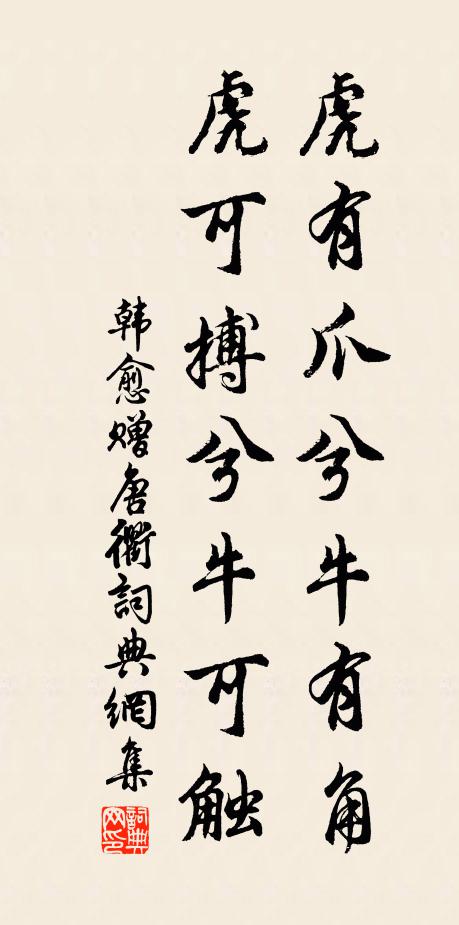 虎有爪兮牛有角
虎可搏兮牛可触
韩愈赠唐衢词典網集
詞典网印